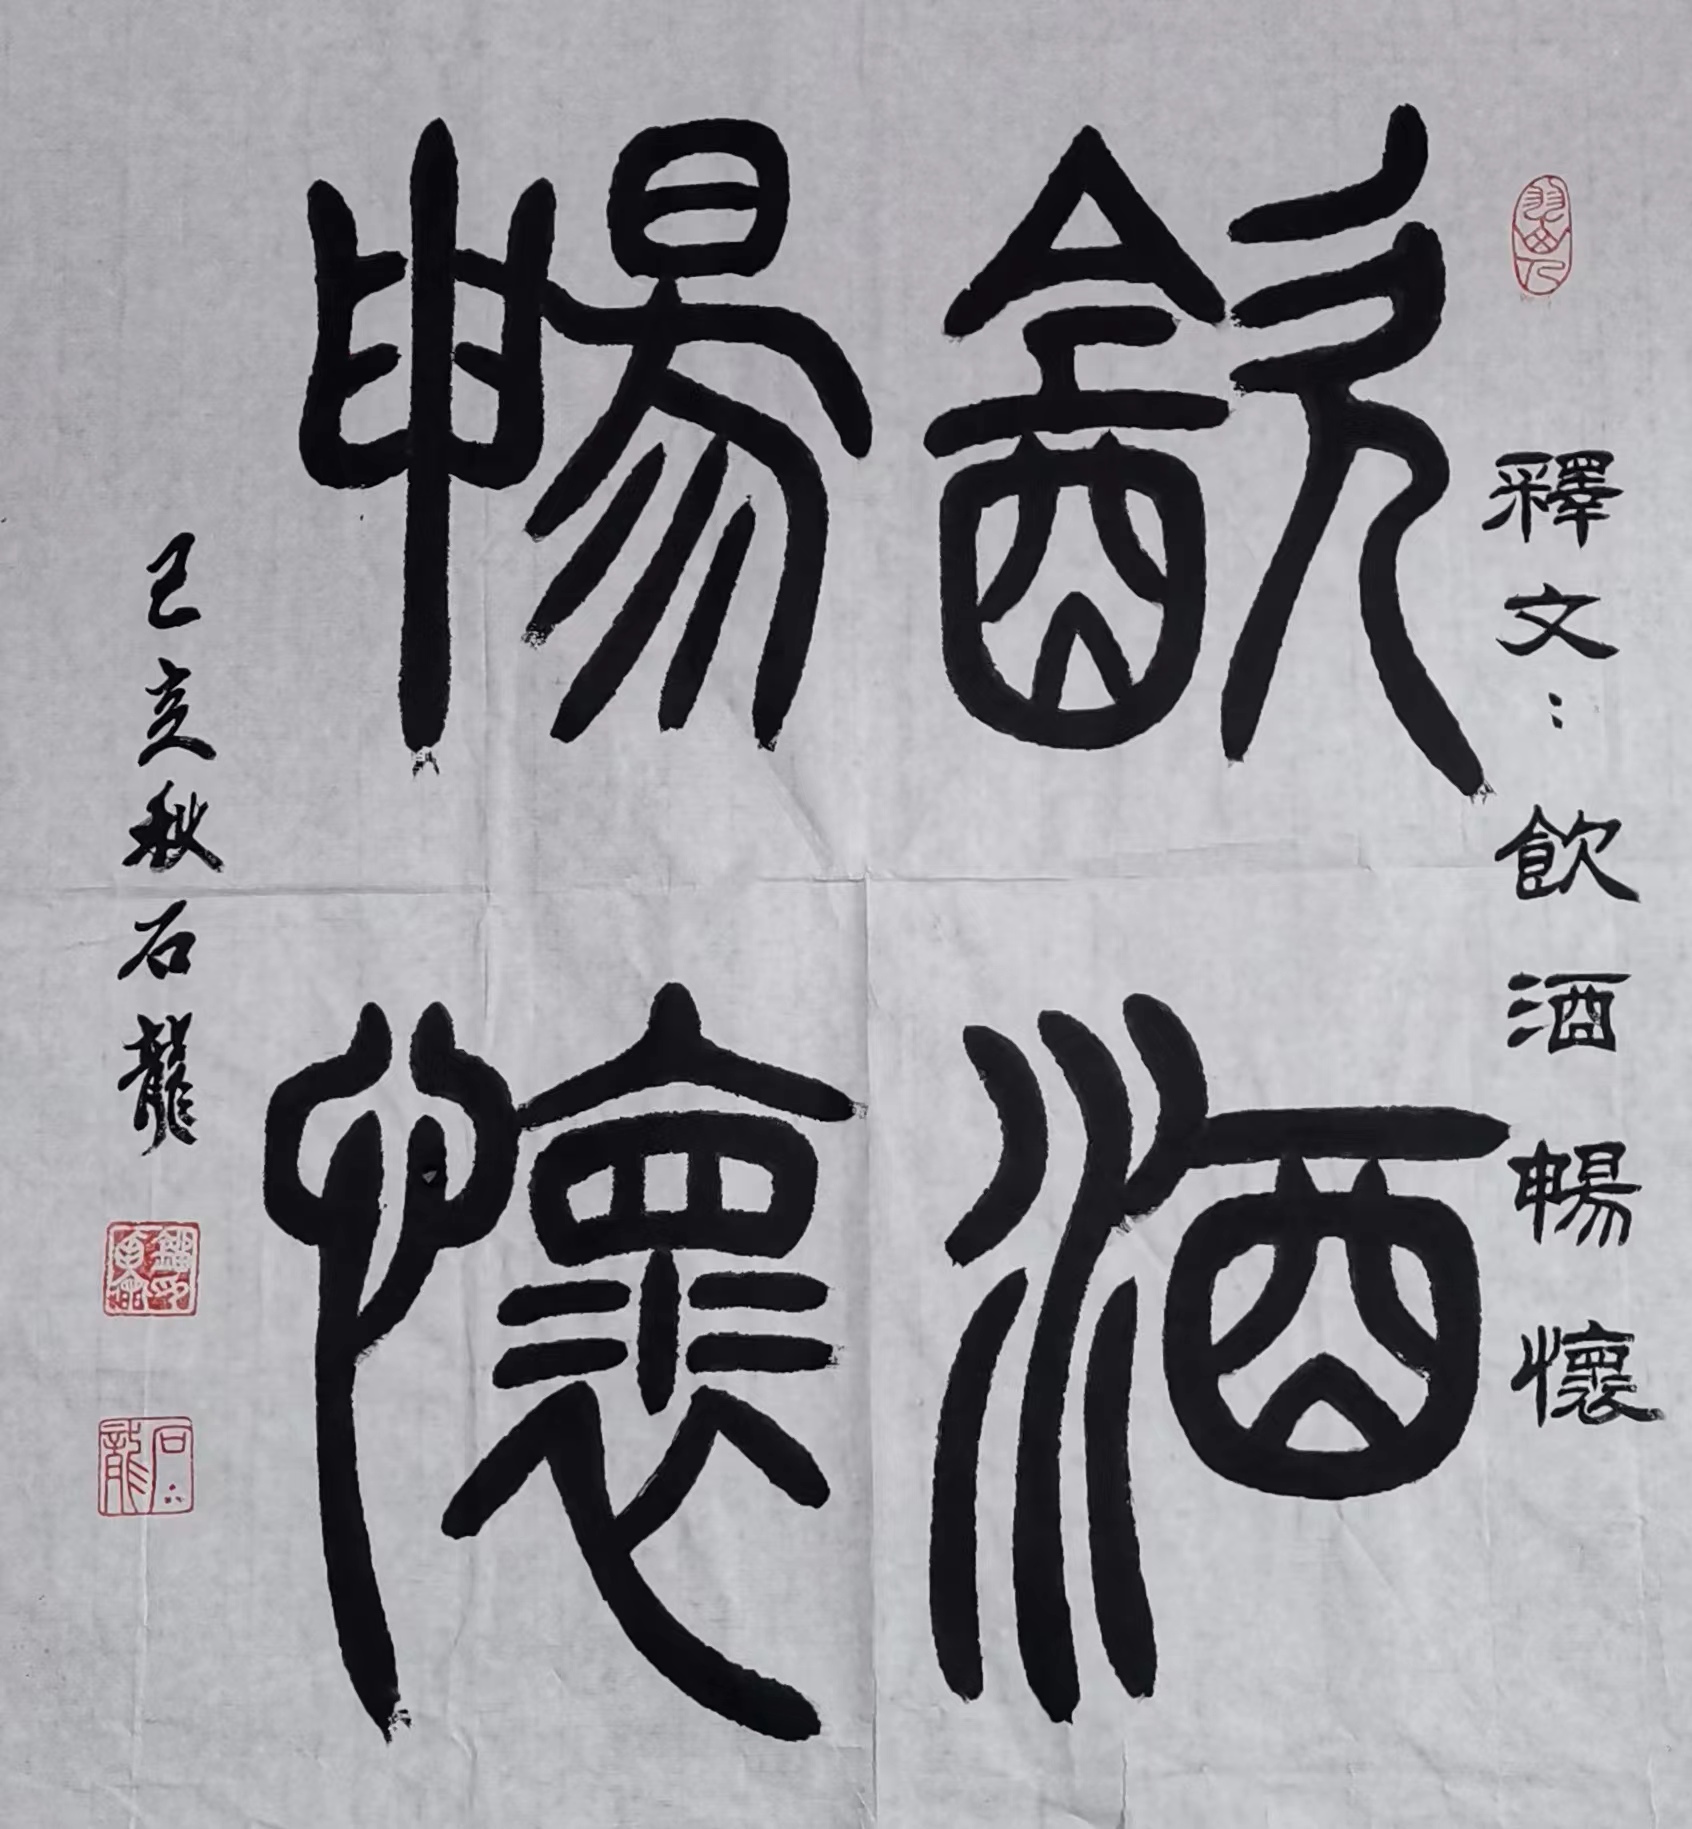 釋文：飲酒暢懷
歓酒
暢懷
己亥秋石龍
石龍